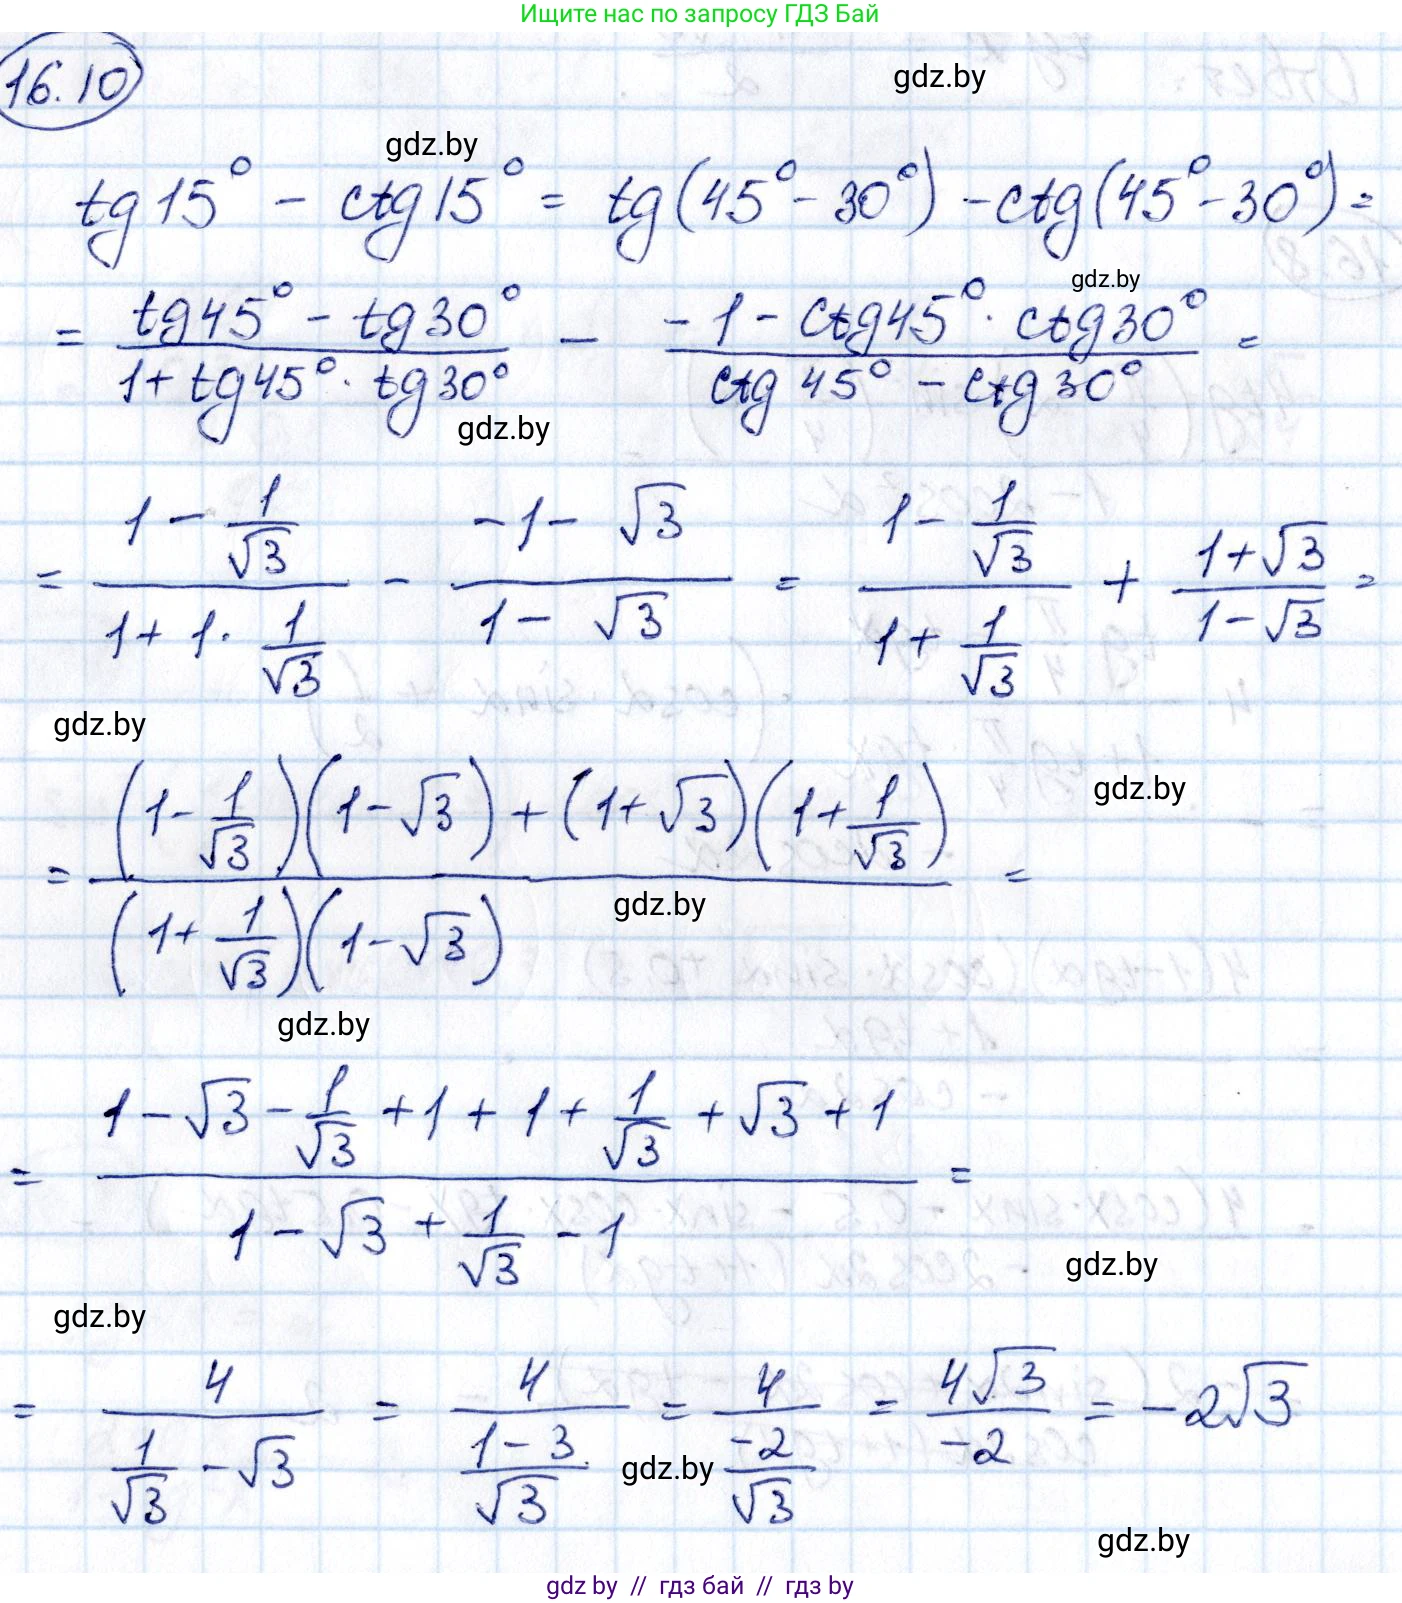 Ищите нас по запросу ГДЗ Бай
16.10
gdz.by
gdz.by
tg 15° - ctg 15° = tg(45° - 30°) - ctg(45° - 30°) =
gdz.by
= (tg 45° - tg 30°)/(1 + tg 45° · tg 30°) - (-1 - ctg 45° · ctg 30°)/(ctg 45° - ctg 30°) =
gdz.by
= (1 - 1/√3)/(1 + 1 · 1/√3) - (-1 - √3)/(1 - √3) = (1 - 1/√3)/(1 + 1/√3) + (1 + √3)/(1 - √3) =
gdz.by
gdz.by
= ((1 - 1/√3)(1 - √3) + (1 + √3)(1 + 1/√3))/((1 + 1/√3)(1 - √3)) =
gdz.by
gdz.by
= (1 - √3 - 1/√3 + 1 + 1 + 1/√3 + √3 + 1)/(1 - √3 + 1/√3 - 1) =
gdz.by
gdz.by
= 4/(1/√3 - √3) = 4/((1 - 3)/√3) = 4/(-2/√3) = 4√3/-2 = -2√3
gdz.by
gdz.by
gdz by // гдз бай // гдз by